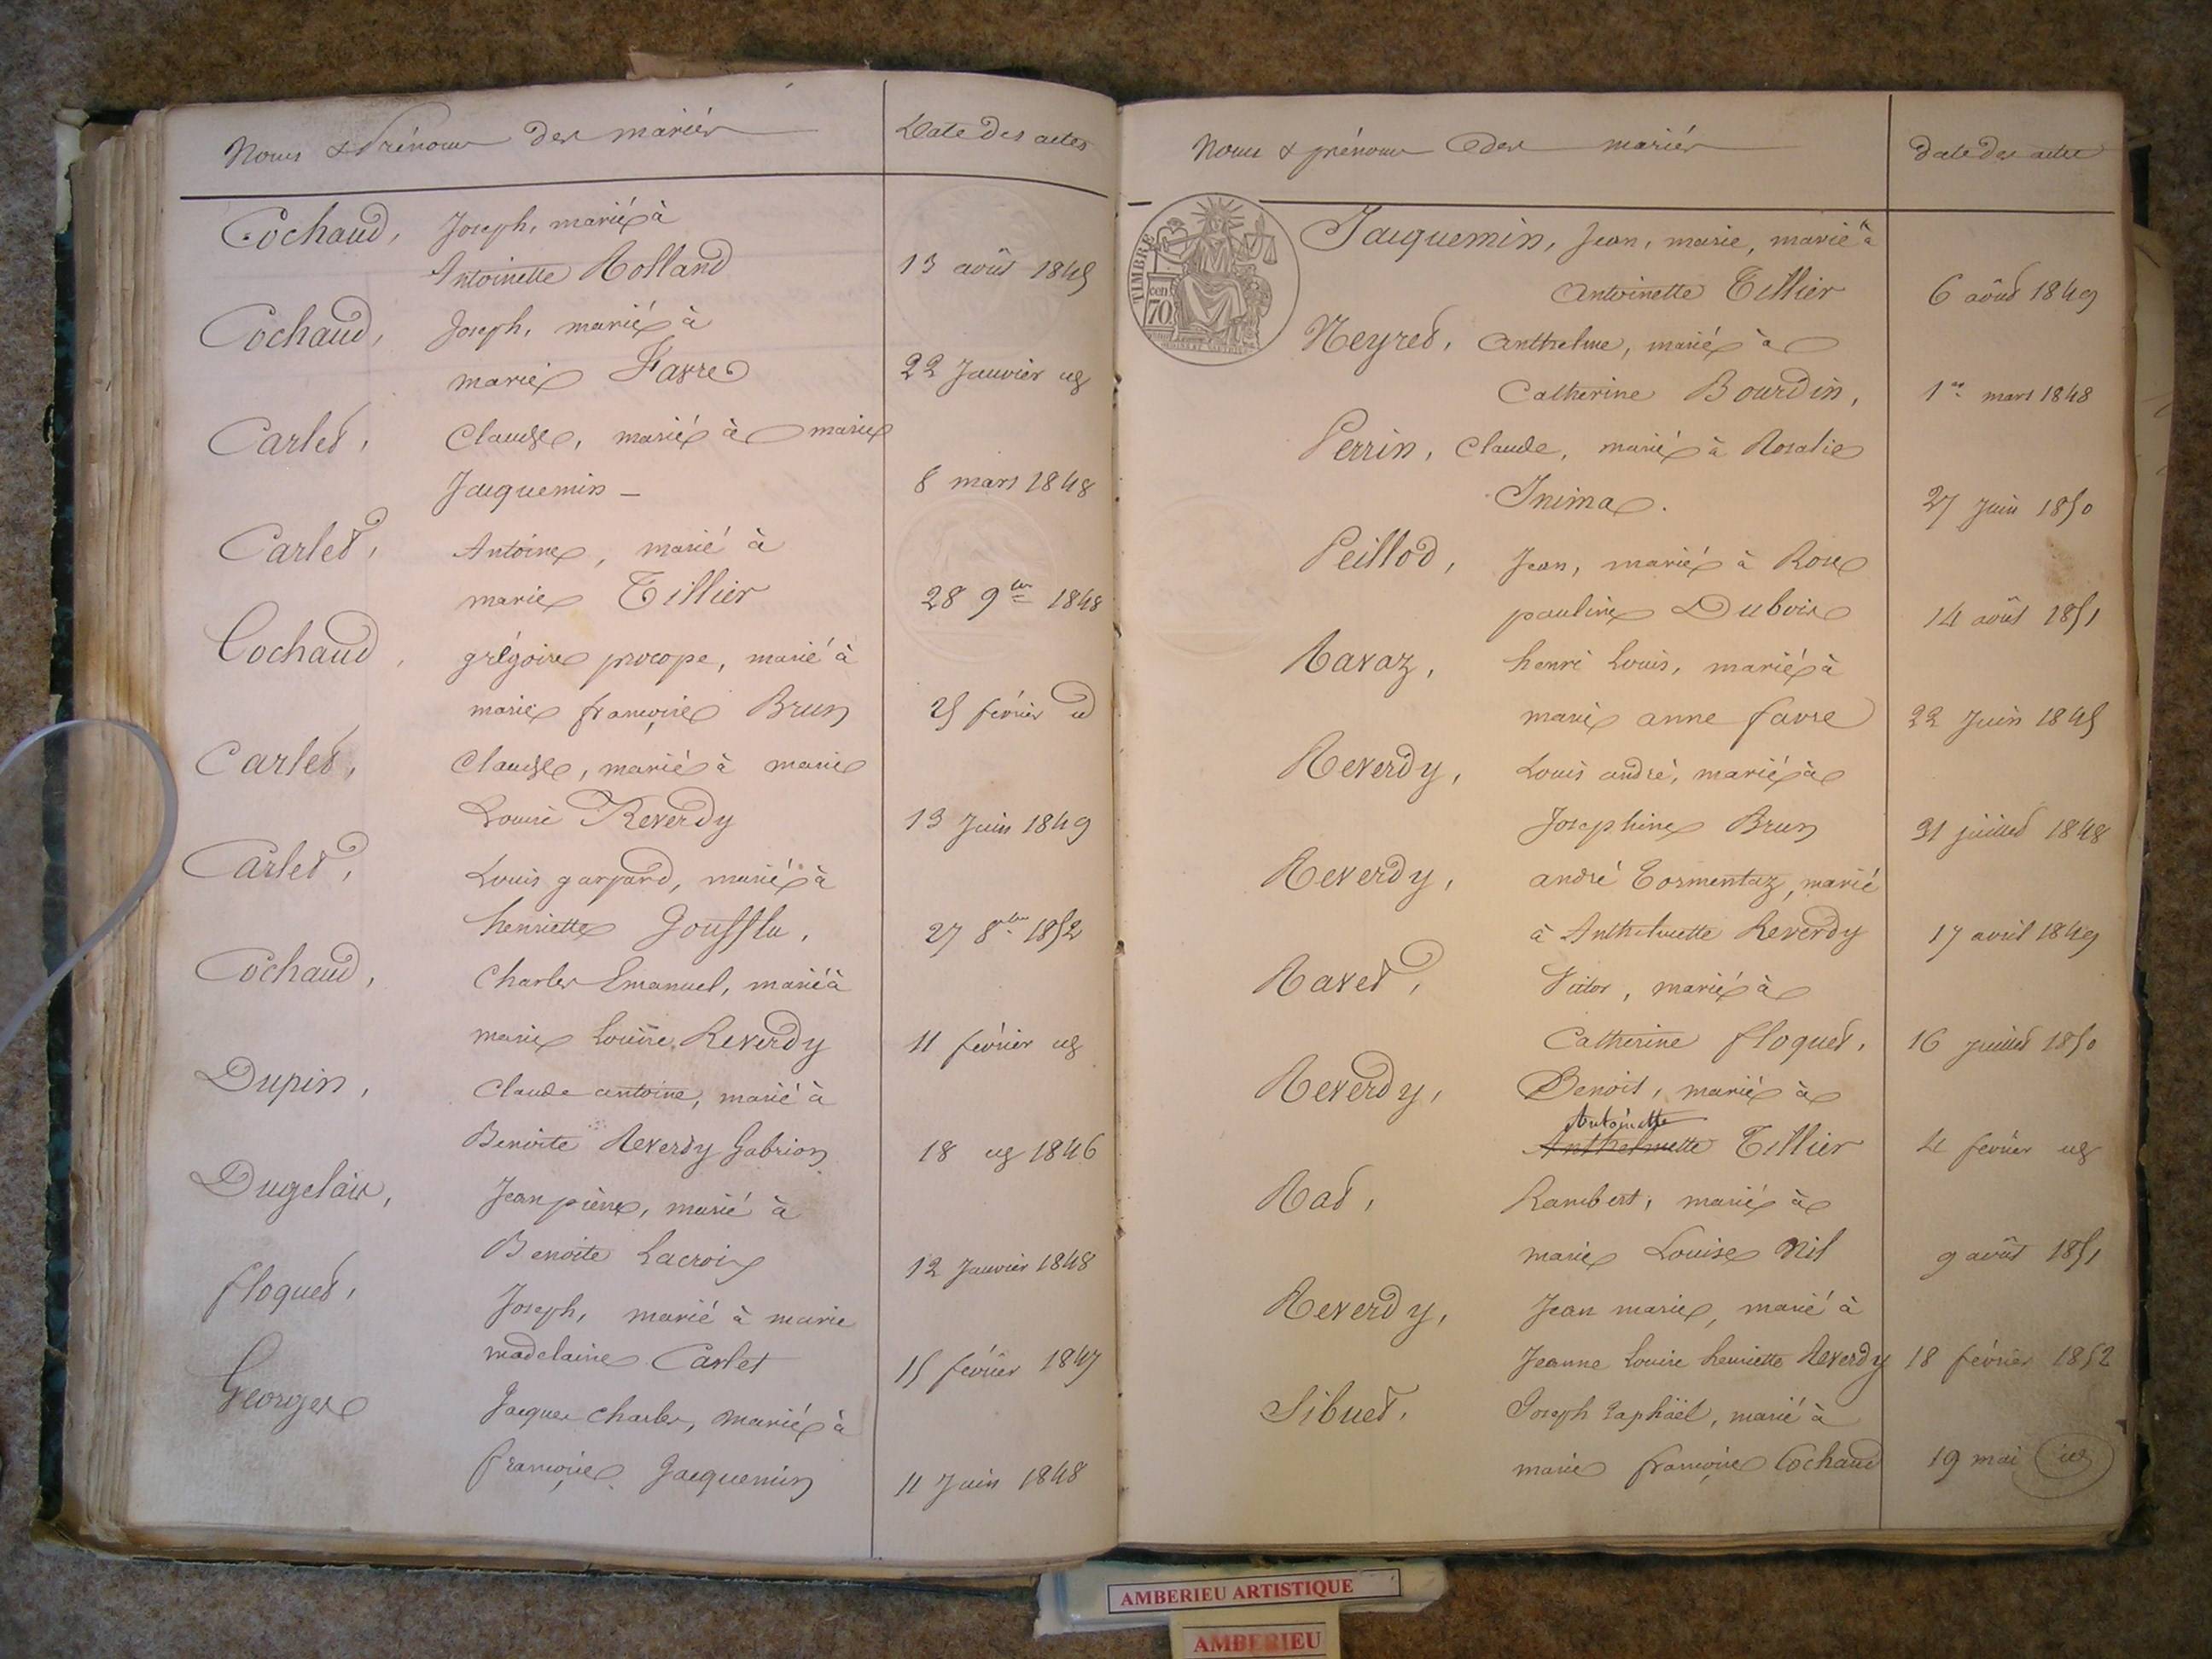 Noms & Prénoms des mariés
Date des actes
Cochaud, Joseph, marié à
Antoinette Rolland 13 août 1845
Cochaud, Joseph, marié à
marie Favre 22 Janvier id
Carlet, Claude, marié à marie
Jacquemin - 8 mars 1848
Carlet, Antoine, marié à
marie Tillier 28 9bre 1848
Cochaud, grégoire procope, marié à
marie françoise Brun 25 février id
Carlet, Claude, marié à marie
Louise Reverdy 13 Juin 1849
Carlet, Louis gaspard, marié à
henriette Goufflu, 27 8bre 1852
Cochaud, Charles Emanuel, marié à
marie Louise Reverdy 11 février id
Dupin, Claude antoine, marié à
Benoite Reverdy Gabrion 18 id 1846
Dugelaix, Jean pierre, marié à
Benoite Lacroix 12 Janvier 1848
floquet, Joseph, marié à marie
madelaine Carlet 15 février 1847
Georges Jacques Charles, marié à
françoise Jacquemin 11 Juin 1848
Noms & prénoms des mariés
date des actes
TIMBRE
cen.
70
Jacquemin, Jean, marie, marié à
Antoinette Tillier 6 août 1849
Neyret, Anthelme, marié à
Catherine Bourdin, 1er mars 1848
Perrin, Claude, marié à Rosalie
Inima. 27 Juin 1850
Peillod, Jean, marié à Rose
pauline Dubois 14 août 1851
Ravaz, henri Louis, marié à
marie anne favre 22 Juin 1845
Reverdy, Louis andré, marié à
Josephine Brun 31 juillet 1848
Reverdy, andré Tormentaz, marié
à Anthelmette Reverdy 17 avril 1849
Ravet, Victor, marié à
Catherine floquet, 16 Juillet 1850
Reverdy, Benoit, marié à
Antoinette
Anthelmette Tillier 4 février id
Rat, Rambert, marié à
marie Louise Nil 9 août 1851
Reverdy, Jean marie, marié à
Jeanne Louise henriette Reverdy 18 février 1852
Sibuet, Joseph raphaël, marié à
marie françoise Cochaud 19 mai id
AMBERIEU ARTISTIQUE
AMBERIEU